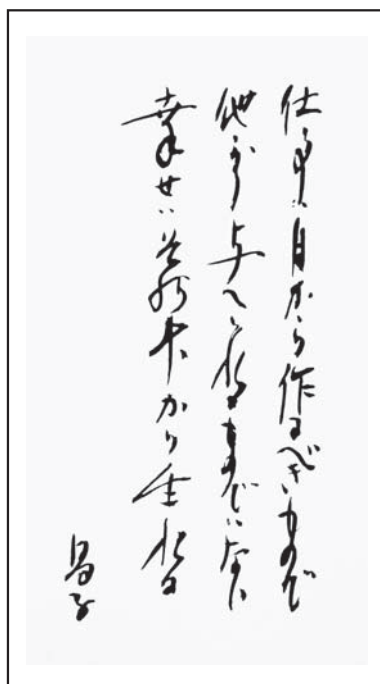 仕事は自から作るべきもので
他から与へられるものでは無い
幸せは其の中から生れる
昌子